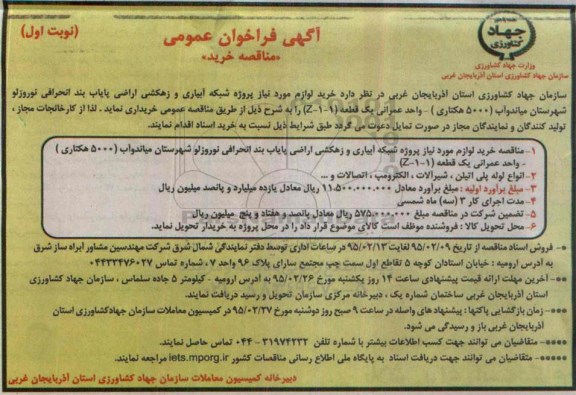 آگهی فراخوان عمومی
(نوبت اول)
«مناقصه خرید»
جهاد کشاورزی
وزارت جهاد کشاورزی
سازمان جهاد کشاورزی استان آذربایجان غربی
سازمان جهاد کشاورزی استان آذربایجان غربی در نظر دارد خرید لوازم مورد نیاز پروژه شبکه آبیاری و زهکشی اراضی پایاب بند انحرافی نوروزلو
شهرستان میاندوآب (۵۰۰۰ هکتاری) - واحد عمرانی یک قطعه (Z-1-1) را به شرح ذیل از طریق مناقصه عمومی خریداری نماید. لذا از کارخانجات مجاز ،
تولید کنندگان و نمایندگان مجاز در صورت تمایل دعوت می گردد طبق شرایط ذیل نسبت به خرید اسناد اقدام نمایند.
۱- مناقصه خرید لوازم مورد نیاز پروژه شبکه آبیاری و زهکشی اراضی پایاب بند انحرافی نوروزلو شهرستان میاندوآب (۵۰۰۰ هکتاری)
- واحد عمرانی یک قطعه (Z-1-1)
۲- انواع لوله پلی اتیلن ، شیرآلات ، الکتروپمپ ، اتصالات و ...
۳- مبلغ برآورد اولیه : مبلغ برآورد معادل ۱۱.۵۰۰.۰۰۰.۰۰۰ ریال معادل یازده میلیارد و پانصد میلیون ریال
۴- مدت اجرای کار ۳ (سه) ماه شمسی
۵- تضمین شرکت در مناقصه مبلغ ۵۷۵.۰۰۰.۰۰۰ ریال معادل پانصد و هفتاد و پنج میلیون ریال
۶- محل تحویل کالا : فروشنده موظف است کالای موضوع قرار داد را در محل پروژه به خریدار تحویل نماید.
* فروش اسناد مناقصه از تاریخ ۹۵/۰۲/۰۹ لغایت ۹۵/۰۲/۱۳ در ساعات اداری توسط دفتر نمایندگی شمال شرق شرکت مهندسین مشاور آبراه ساز شرق
به آدرس ارومیه : خیابان استادان کوچه ۵ تقاطع اول سمت چپ مجتمع سارای پلاک ۹۶ واحد ۷ ، شماره تماس ۰۴۴۳۳۴۷۶۰۲۷
** آخرین مهلت ارائه قیمت پیشنهادی ساعت ۱۴ روز یکشنبه مورخ ۹۵/۰۲/۲۶ به آدرس ارومیه - کیلومتر ۵ جاده سلماس ، سازمان جهاد کشاورزی
استان آذربایجان غربی ساختمان شماره یک ، دبیرخانه مرکزی سازمان تحویل و رسید دریافت نمایند.
*** زمان بازگشایی پاکتها : پیشنهاد های واصله در ساعت ۹ صبح روز دوشنبه مورخ ۹۵/۰۲/۲۷ در کمیسیون معاملات سازمان جهادکشاورزی استان
آذربایجان غربی باز و رسیدگی می شود.
**** متقاضیان می توانند جهت کسب اطلاعات بیشتر با شماره تلفن ۳۱۹۷۴۲۳۲ - ۰۴۴ تماس حاصل نمایند.
***** متقاضیان می توانند جهت دریافت اسناد به پایگاه ملی اطلاع رسانی مناقصات کشور iets.mporg.ir مراجعه نمایند.
دبیرخانه کمیسیون معاملات سازمان جهاد کشاورزی استان آذربایجان غربی